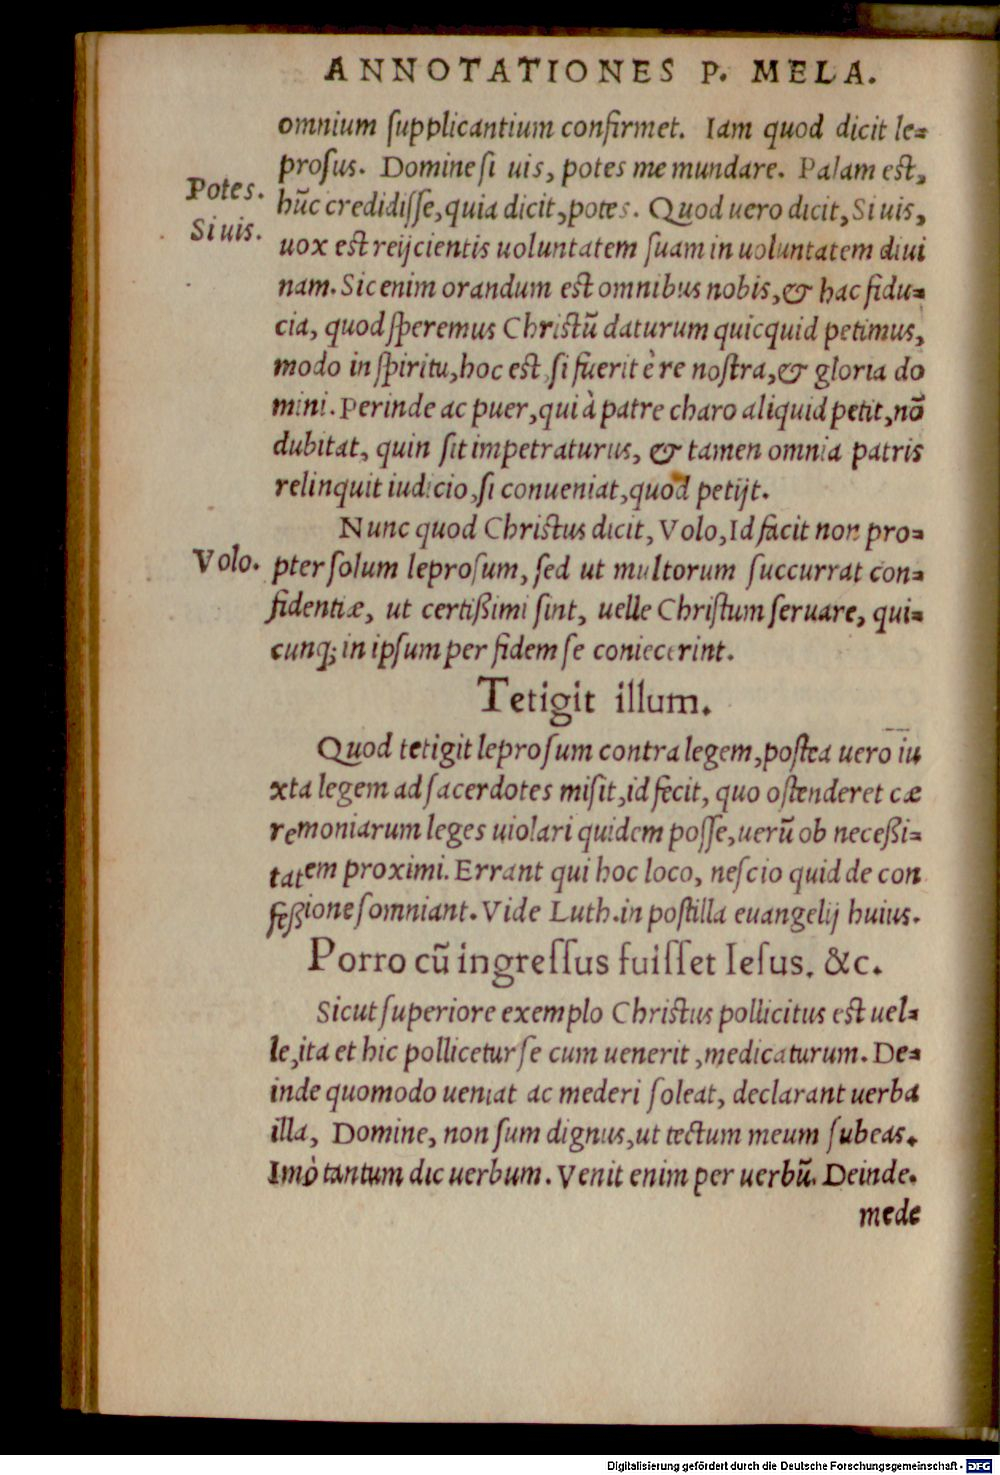 ANNOTATIONES P. MELA.
omnium ſupplicantium confirmet. Iam quod dicit le⸗
proſus. Domine ſi uis, potes me mundare. Palam eſt,
Potes.
hũc credidiſſe, quia dicit, potes. Quod uero dicit, Si uis,
Si uis.
uox eſt reijcientis uoluntatem ſuam in uoluntatem diui
nam. Sic enim orandum eſt omnibus nobis, & hac fidu⸗
cia, quod ſperemus Chriſtũ daturum quicquid petimus,
modo in ſpiritu, hoc eſt, ſi fuerit è re noſtra, & gloria do
mini. Perinde ac puer, qui à patre charo aliquid petit, nõ
dubitat, quin ſit impetraturus, & tamen omnia patris
relinquit iudicio, ſi conueniat, quod petijt.
Nunc quod Chriſtus dicit, Volo, Id facit non pro⸗
Volo.
pter ſolum leproſum, ſed ut multorum ſuccurrat con⸗
fidentiæ, ut certißimi ſint, uelle Chriſtum ſeruare, qui⸗
cunq; in ipſum per fidem ſe coniecerint.
Tetigit illum.
Quod tetigit leproſum contra legem, poſtea uero iu
xta legem ad ſacerdotes miſit, id fecit, quo oſtenderet cæ
remoniarum leges uiolari quidem poſſe, uerũ ob neceßi⸗
tatem proximi. Errant qui hoc loco, neſcio quid de con
feßione ſomniant. Vide Luth. in poſtilla euangelij huius.
Porro cũ ingreſſus fuiſſet Ieſus. &c.
Sicut ſuperiore exemplo Chriſtus pollicitus eſt uel⸗
le, ita et hic pollicetur ſe cum uenerit, medicaturum. De⸗
inde quomodo ueniat ac mederi ſoleat, declarant uerba
illa, Domine, non ſum dignus, ut tectum meum ſubeas.
Imò tantum dic uerbum. Venit enim per uerbũ. Deinde.
mede
Digitalisierung gefördert durch die Deutsche Forschungsgemeinschaft - DFG